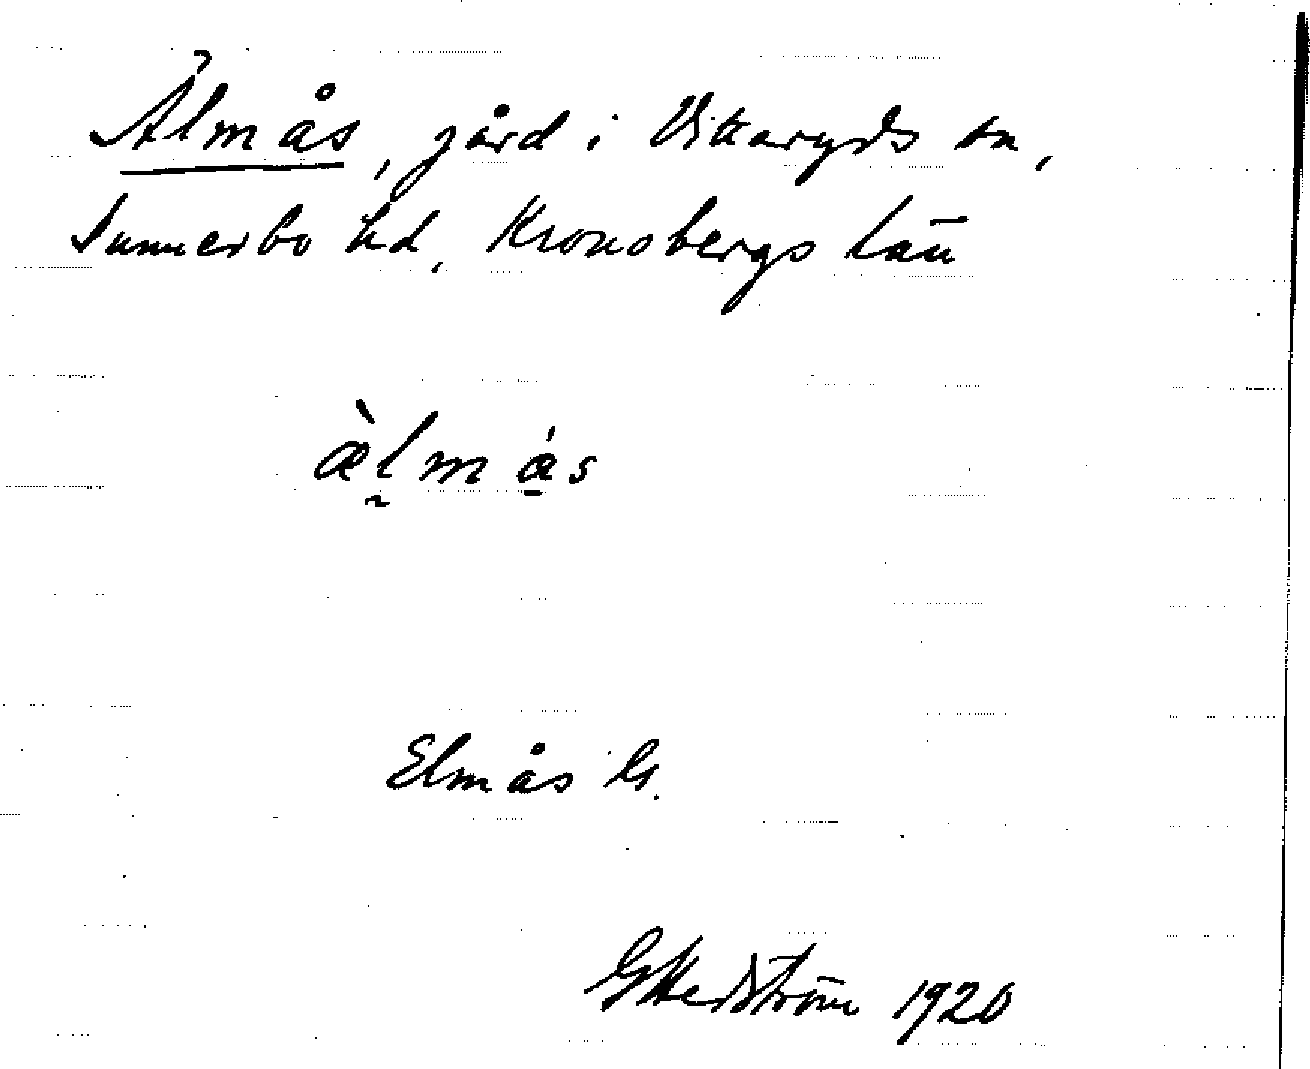 Älmås, gård i Vittaryds sn,
Sunnerbo hd, Kronobergs län
æ̀lmás
Elmås G.
G Hedström 1920